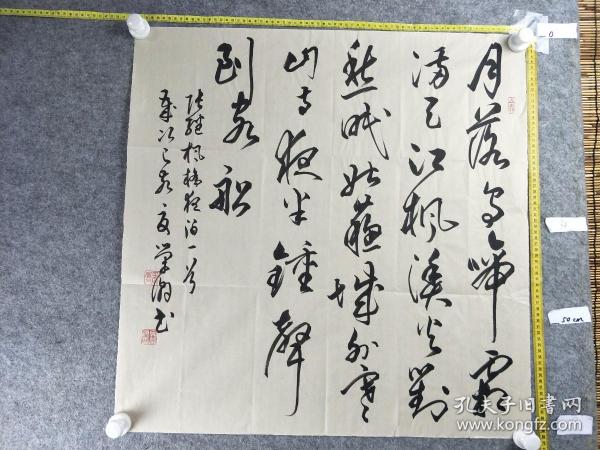 月落乌啼霜
满天江枫渔火对
愁眠姑苏城外寒
山寺夜半钟声
到客船
张继枫桥夜泊一首
岁次己亥夏 书
0
50cm
孔夫子旧书网
www.kongfz.com